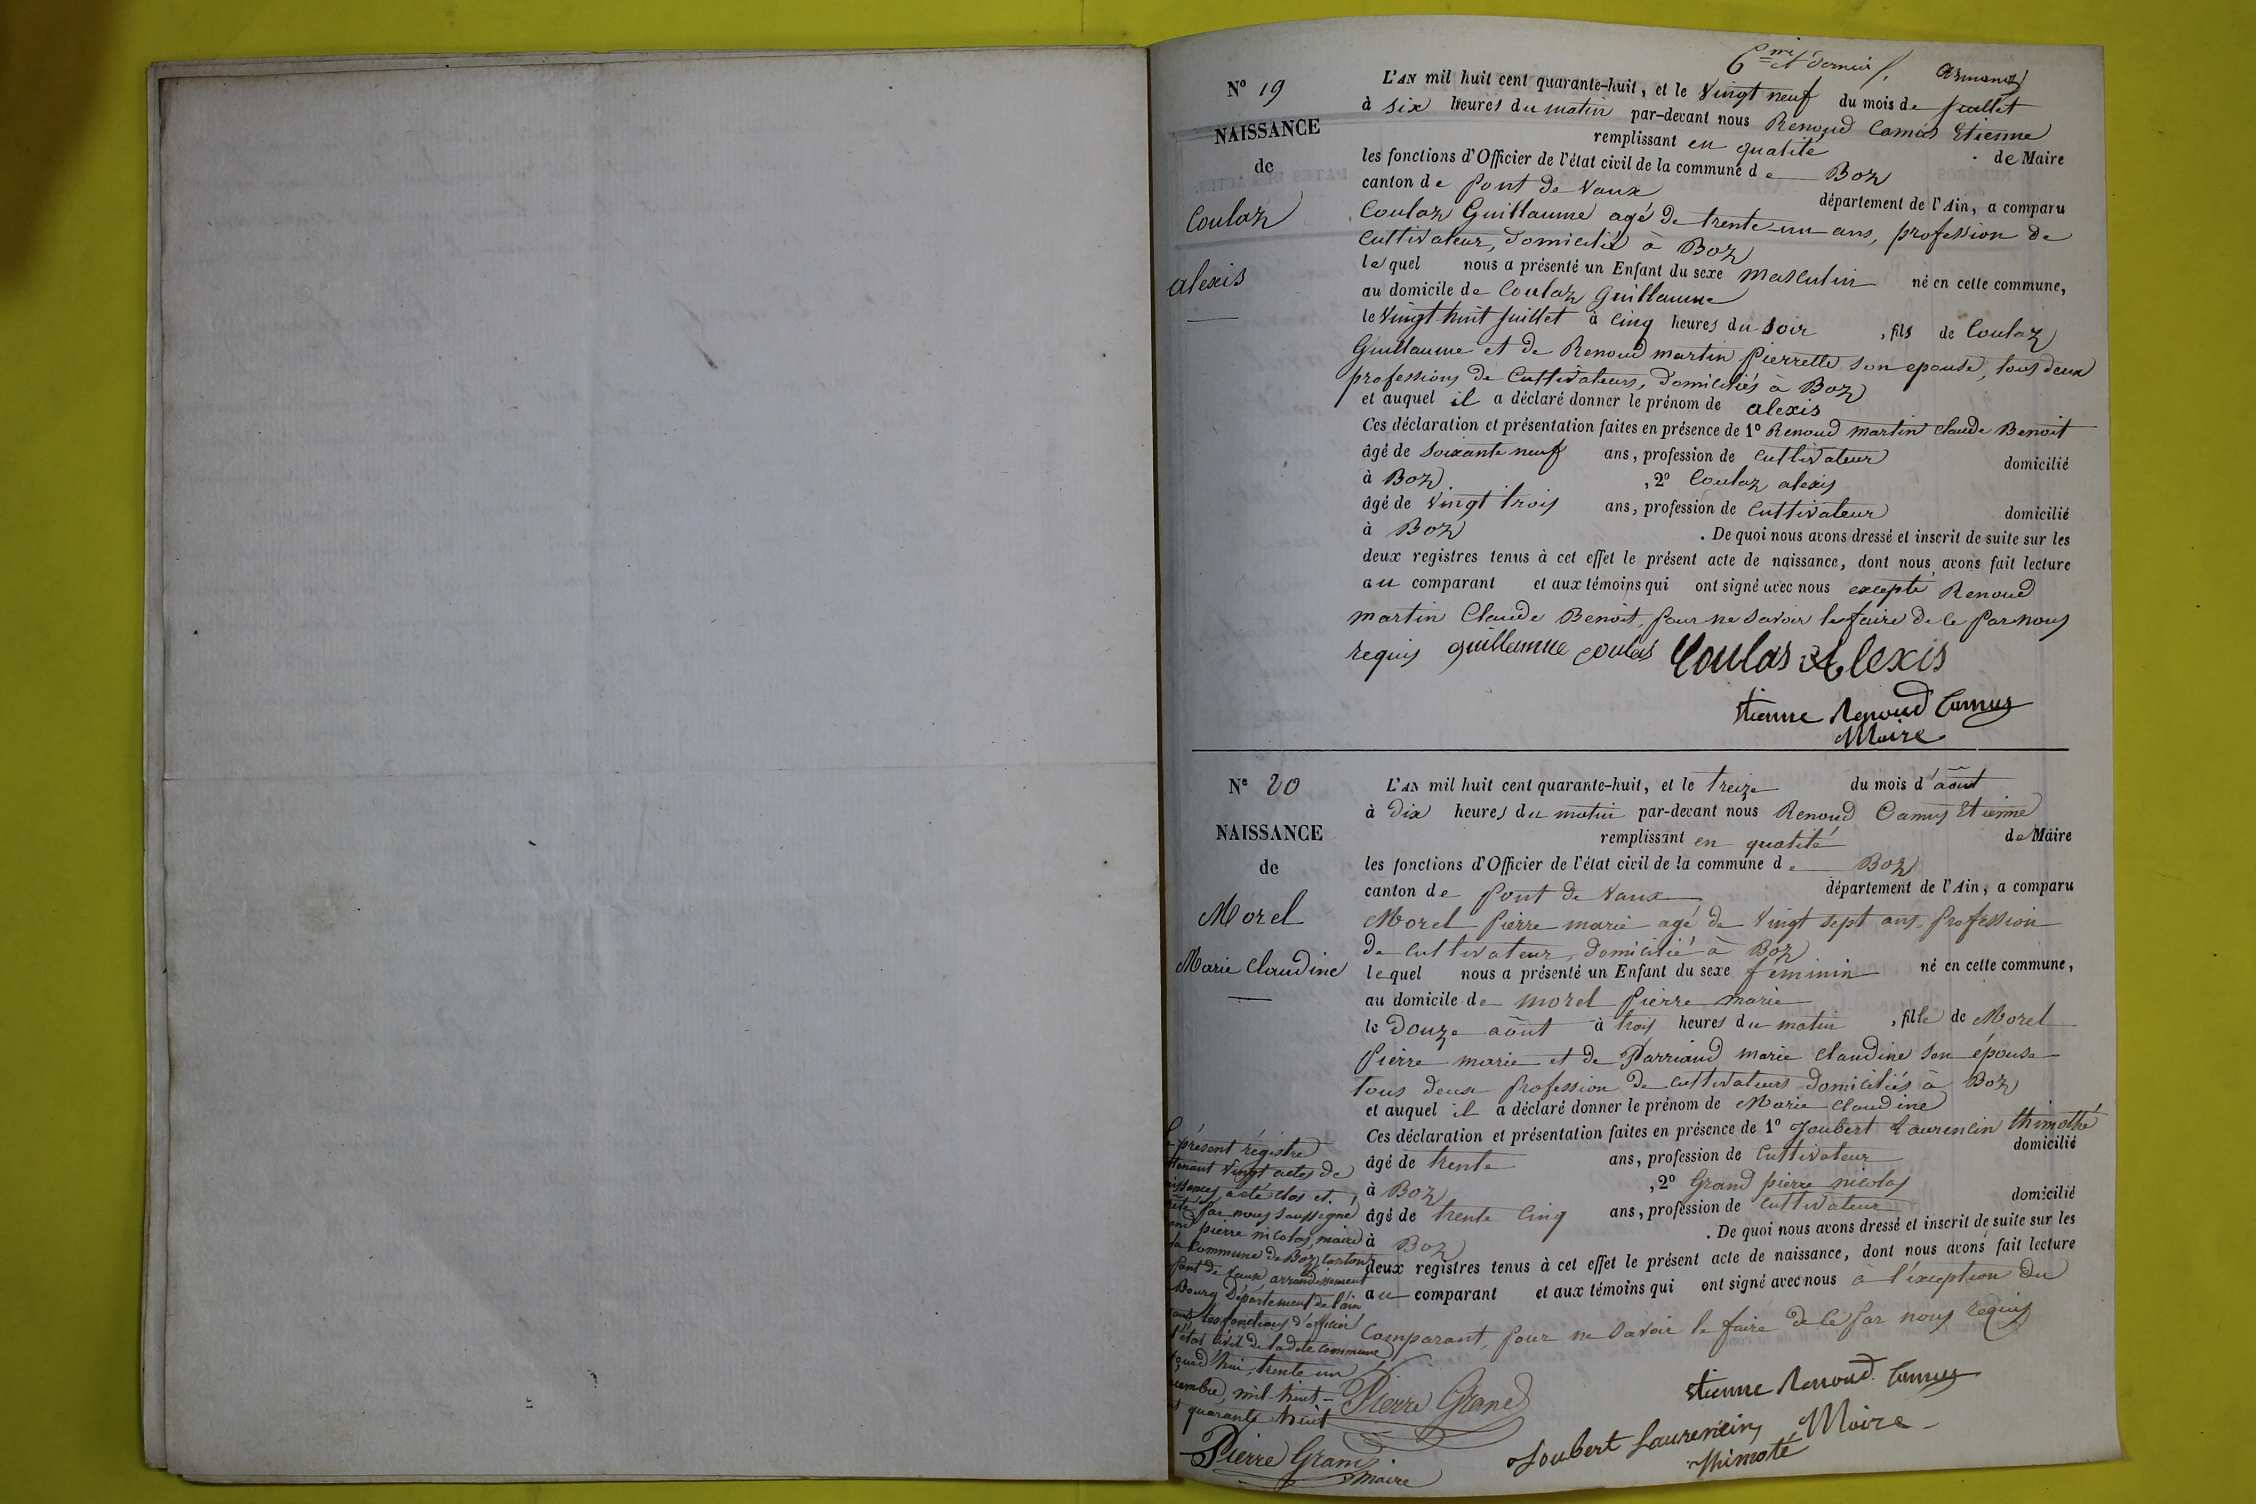 6me et dernier f. Armand
N° 19
NAISSANCE
de
Coulaz
alexis
L'AN mil huit cent quarante-huit, et le Vingt neuf du mois de Juillet
à six heures du matin par-devant nous Renoud Camus Etienne
remplissant en qualité de Maire
les fonctions d'Officier de l'état civil de la commune de Boz
canton de Pont de Vaux département de l'Ain, a comparu
Coulaz Guillaume agé de trente-un ans, profession de
Cultivateur, domicilié à Boz
lequel nous a présenté un Enfant du sexe Masculin né en cette commune,
au domicile de Coulaz Guillaume
le Vingt huit Juillet à Cinq heures du soir , fils de Coulaz
Guillaume et de Renoud martin Pierrette son epouse, tous deux
professions de Cultivateurs, domiciliés à Boz
et auquel il a déclaré donner le prénom de alexis
Ces déclaration et présentation faites en présence de 1° Renoud martin Claude Benoit
âgé de soixante neuf ans, profession de Cultivateur domicilié
à Boz , 2° Coulaz alexis
âgé de Vingt trois ans, profession de Cultivateur domicilié
à Boz . De quoi nous avons dressé et inscrit de suite sur les
deux registres tenus à cet effet le présent acte de naissance, dont nous avons fait lecture
au comparant et aux témoins qui ont signé avec nous excepté Renoud
martin Claude Benoit, pour ne savoir le faire de ce par nous
requis guillaume coulas Coulas Alexis
Etienne Renoud Camus
Maire
N° 20
NAISSANCE
de
Morel
Marie Claudine
L'AN mil huit cent quarante-huit, et le treize du mois d'août
à dix heures du matin par-devant nous Renoud Camus Etienne
remplissant en qualité de Maire
les fonctions d'Officier de l'état civil de la commune de Boz
canton de Pont de Vaux département de l'Ain, a comparu
Morel Pierre marie agé de Vingt sept ans, profession
de cultivateur, domicilié à Boz
lequel nous a présenté un Enfant du sexe féminin né en cette commune,
au domicile de morel Pierre marie
le Douze août à trois heures du matin , fille de Morel
Pierre marie et de Parriaud marie Claudine son épouse
tous deux profession de cultivateurs domiciliés à Boz
et auquel il a déclaré donner le prénom de Marie Claudine
Ces déclaration et présentation faites en présence de 1° Joubert Laurencin thimothé
âgé de trente ans, profession de Cultivateur domicilié
à Boz , 2° Grand pierre nicolas
âgé de trente cinq ans, profession de cultivateur domicilié
à Boz . De quoi nous avons dressé et inscrit de suite sur les
deux registres tenus à cet effet le présent acte de naissance, dont nous avons fait lecture
au comparant et aux témoins qui ont signé avec nous à l'éxception du
Comparant, pour ne savoir le faire de ce par nous requis
Etienne Renoud Camus
Pierre Grand
Joubert Laurencin Maire
thimoté
présent régistre
tenant Vingt actes de
issances a été clos et
rêté par nous soussigné
and pierre nicolas, maire
la Commune de Boz, Canton
Pont de Vaux arrondissement
Bourg Département de l'ain
les fonctions d'officier
l'état civil de ladite commune
jourd'hui, trente un
cembre, mil huit
quarante huit
Pierre Grand
maire